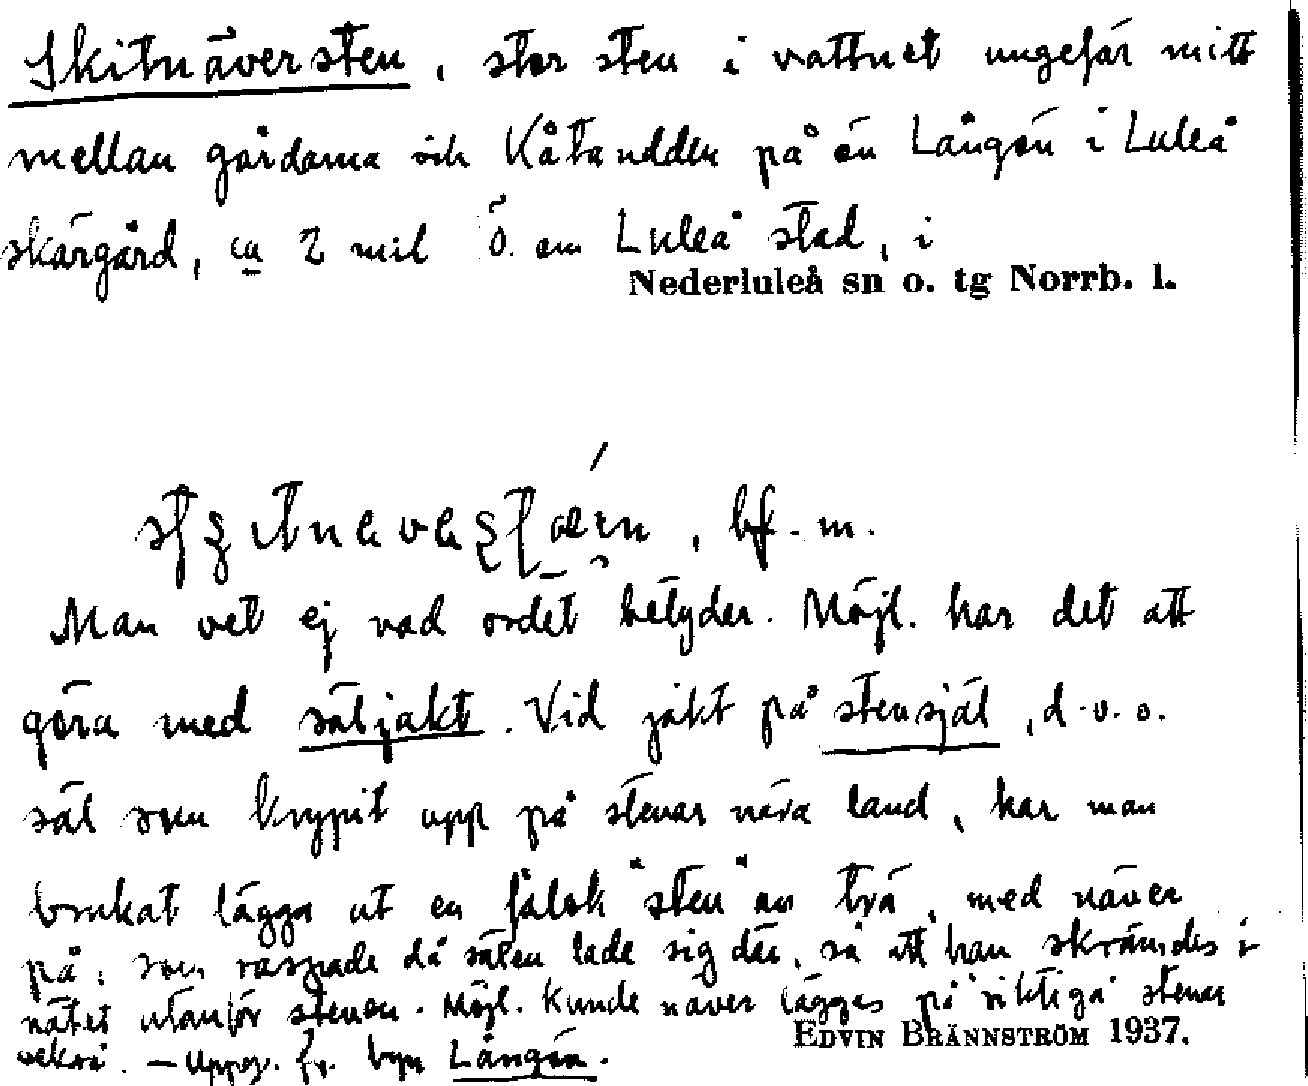 Skitnäversten, stor sten i vattnet ungefär mitt
mellan gårdarna och Kåtaudden på ön Långön i Luleå
skärgård, ca 2 mil Ö. om Luleå stad, i
Nederluleå sn o. tg Norrb. l.
, bf. m.
Man vet ej vad ordet betyder. Möjl. har det att
göra med säljakt. Vid jakt på stensjäl, d.v.s.
säl som krypit upp på stenar nära land, har man
brukat lägga ut en falsk "sten" av trä, med näver
på, som rasplade då sälen lade sig där, så att han skrämdes i
nätet utanför stenen. Möjl. kunde näver läggas på "riktiga" stenar
också. – Uppg. fr. byn Långön.
EDVIN BRÄNNSTRÖM 1937.